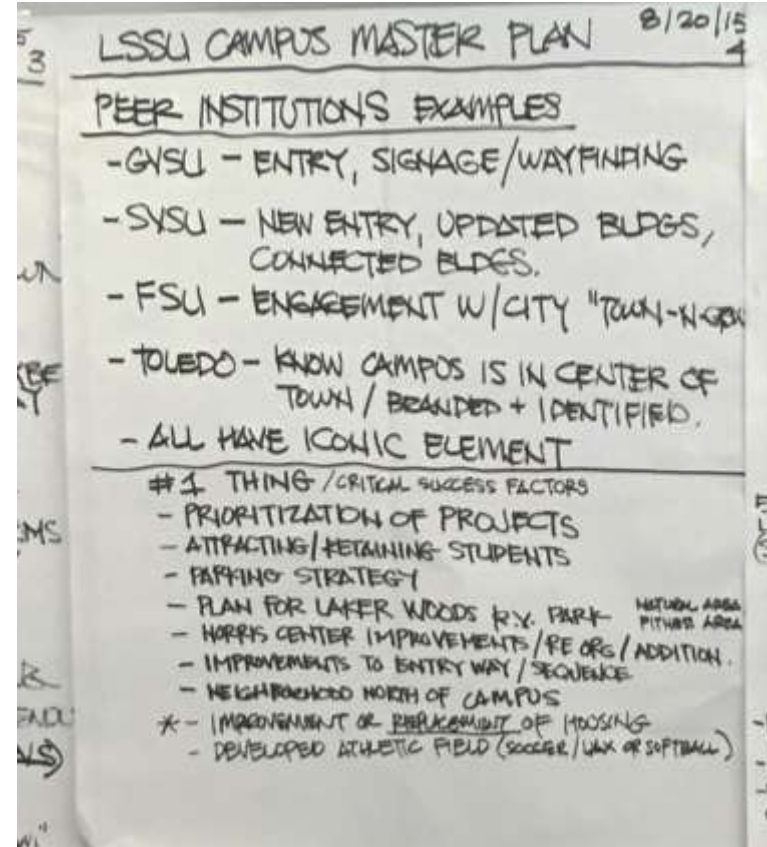 LSSU CAMPUS MASTER PLAN 8/20/15
4
PEER INSTITUTIONS EXAMPLES
- GVSU - ENTRY, SIGNAGE/WAYFINDING
- SVSU - NEW ENTRY, UPDATED BLDGS,
CONNECTED BLDGS.
- FSU - ENGAGEMENT W/CITY "TOWN-N-GOWN
- TOLEDO - KNOW CAMPUS IS IN CENTER OF
TOWN / BRANDED + IDENTIFIED.
- ALL HAVE ICONIC ELEMENT
#1 THING /CRITICAL SUCCESS FACTORS
- PRIORITIZATION OF PROJECTS
- ATTRACTING/RETAINING STUDENTS
- PARKING STRATEGY
- PLAN FOR LAKER WOODS R.V. PARK NATURAL AREA
AREA
- NORRIS CENTER IMPROVEMENTS/RE ORG/ADDITION.
- IMPROVEMENTS TO ENTRY WAY/SEQUENCE
- NEIGHBORHOOD NORTH OF CAMPUS
* - IMPROVEMENT OR REPLACEMENT OF HOUSING
- DEVELOPED ATHLETIC FIELD (SOCCER/LAX OR SOFTBALL)